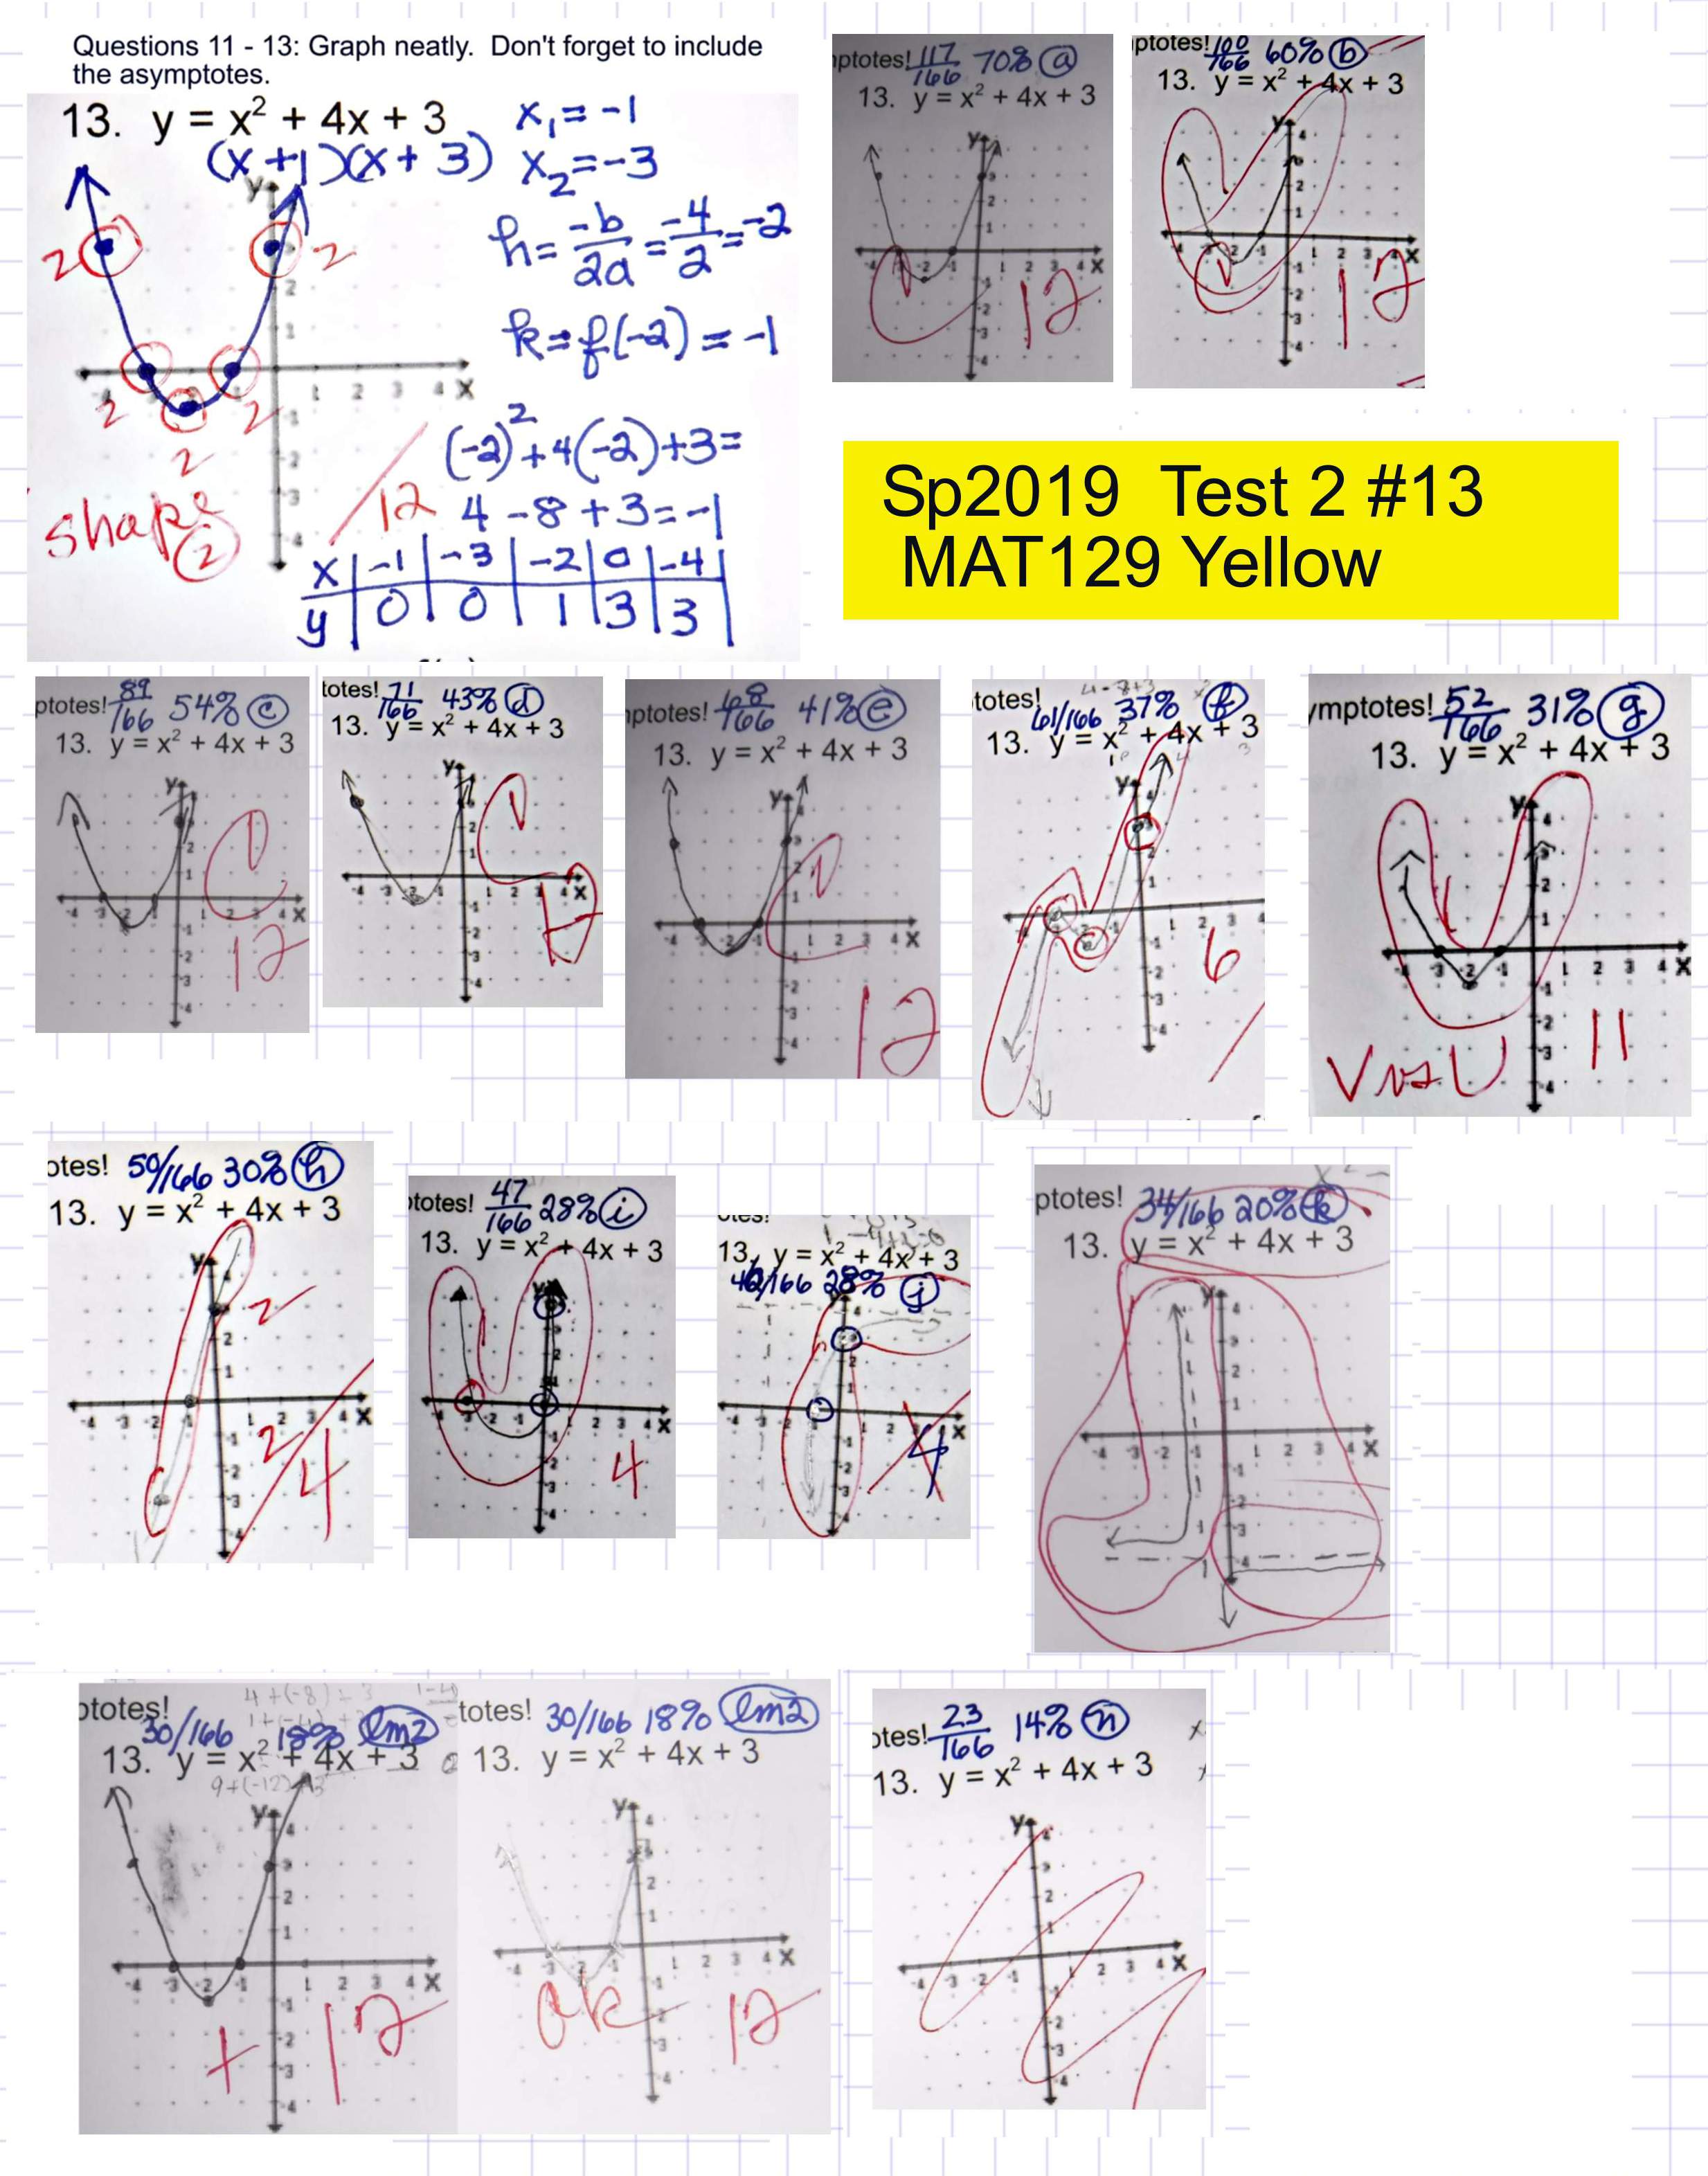 Questions 11 - 13: Graph neatly. Don't forget to include
the asymptotes.
13. y = x² + 4x + 3
(x + 1)(x + 3)
x₁ = -1
x₂ = -3
h = -b/2a = -4/2 = -2
k = f(-2) = -1
(-2)² + 4(-2) + 3 =
4 - 8 + 3 = -1
x | -1 | -3 | -2 | 0 | -4
y | 0 | 0 | 1 | 3 | 3
2 2
2 2
2
shape
2
/12
ptotes! 117/166 70% a
13. y = x² + 4x + 3
12
ptotes! 100/166 60% b
13. y = x² + 4x + 3
12
Sp2019 Test 2 #13
MAT129 Yellow
ptotes! 89/166 54% c
13. y = x² + 4x + 3
12
totes! 71/166 43% d
13. y = x² + 4x + 3
12
ptotes! 68/166 41% e
13. y = x² + 4x + 3
12
totes!
61/166 37% f
13. y = x² + 4x + 3
6
ymptotes! 52/166 31% g
13. y = x² + 4x + 3
V vs U 11
otes! 50/166 30% h
13. y = x² + 4x + 3
2
2
4
totes! 47/166 28% i
13. y = x² + 4x + 3
4
otes!
13. y = x² + 4x + 3
28% j
4
ptotes! 34/166 20% k
13. y = x² + 4x + 3
ptotes!
30/166 18% lm2
13. y = x² + 4x + 3
+ 12
totes! 30/166 18% lm2
13. y = x² + 4x + 3
ok 12
otes! 23/166 14% n
13. y = x² + 4x + 3